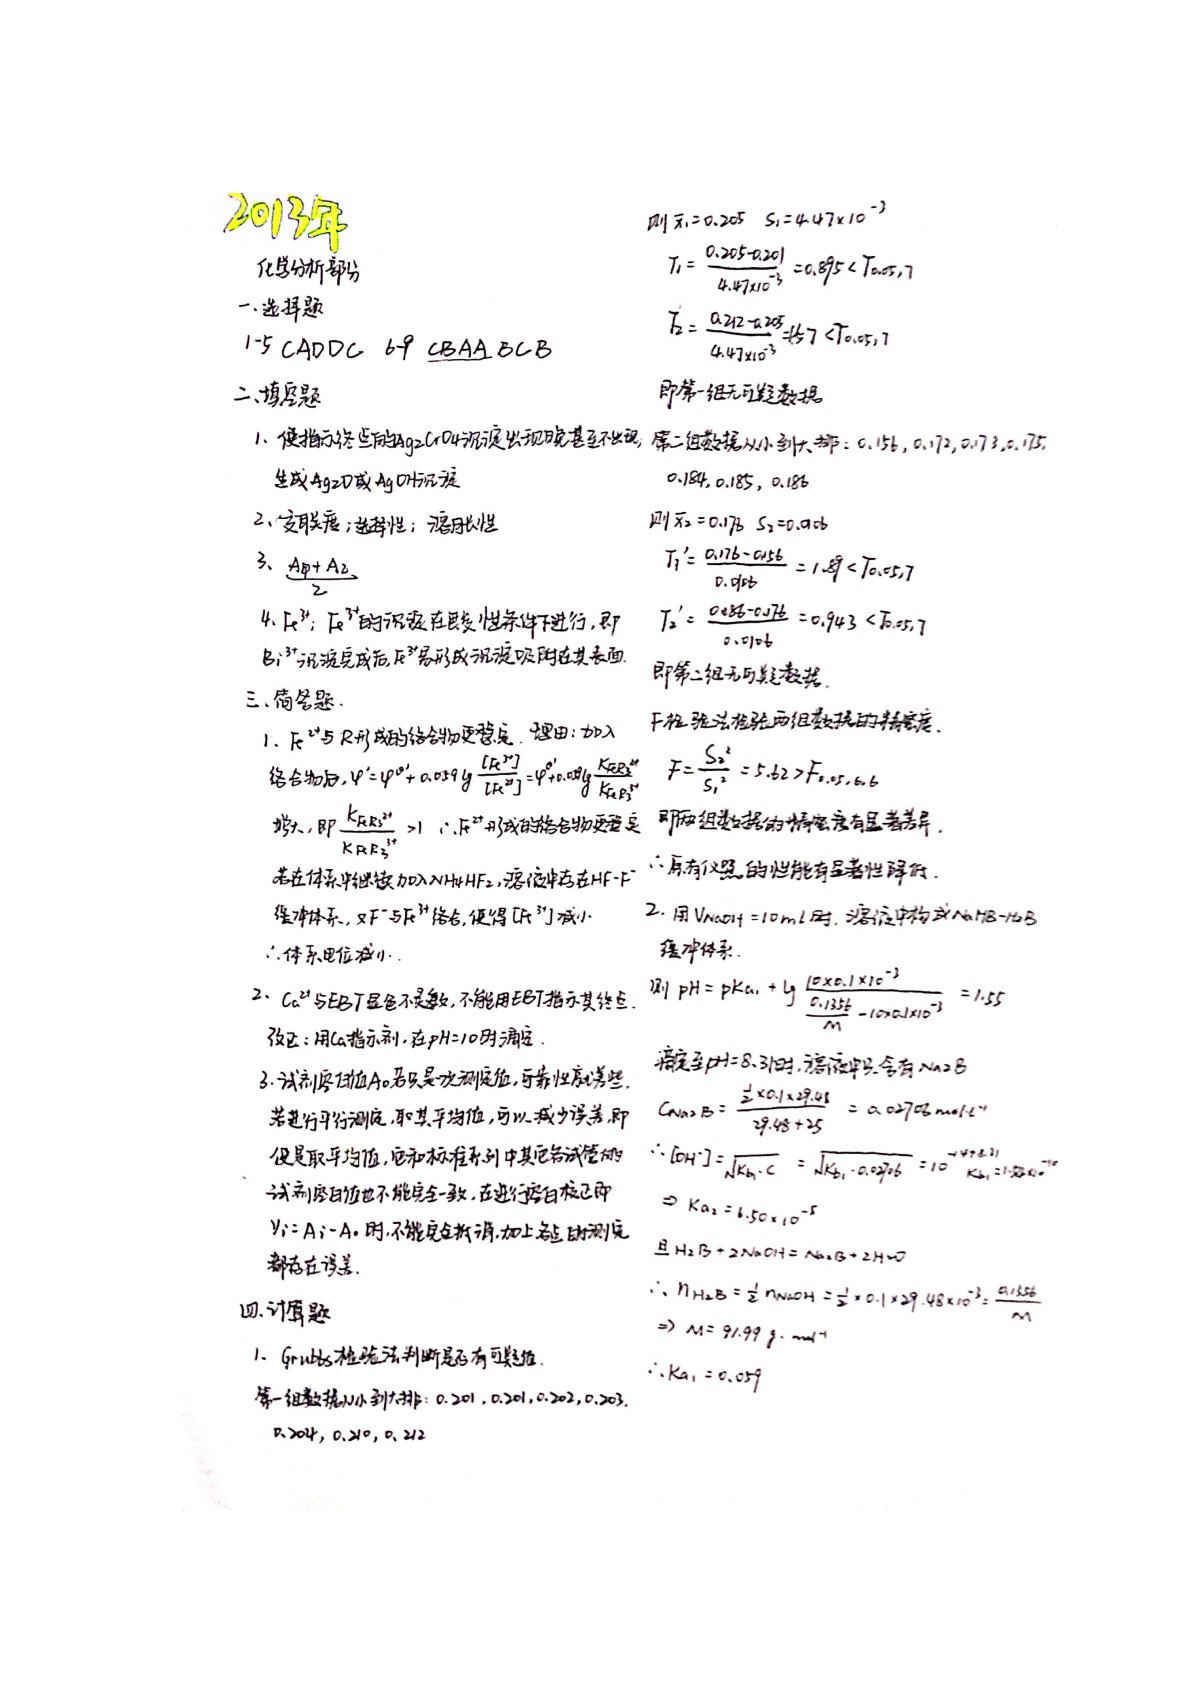 2013年
化学分析部分
一、选择题
1-5 CADDC 6-9 CBAA BCB
二、填空题
1、使指示终点的Ag2CrO4沉淀出现晚甚至不出现;
生成Ag2O或AgOH沉淀
2、交联度;选择性;溶胀性
3、
4、Fe³⁺; Fe³⁺的沉淀在酸性条件下进行,即
Bi³⁺沉淀完成后,Fe³⁺易形成沉淀吸附在其表面.
三、简答题.
1、Fe²⁺与R形成的络合物更稳定. 理由:加入
络合物后, φ'=φ⁰'+0.059lg [Fe³⁺]/[Fe²⁺] =φ⁰'+0.059lg KFeR3²⁺/KFeR3³⁺
增大,即 KFeR3²⁺/KFeR3³⁺ >1 ∴Fe²⁺形成的络合物更稳定
若在体系中继续加入NH4HF2,溶液中存在HF-F⁻
缓冲体系, 又F⁻与Fe³⁺络合,使得[Fe³⁺]减小
∴体系电位减小.
2、Ca²⁺与EBT显色不灵敏,不能用EBT指示其终点.
改正:用Ca指示剂,在pH=10时滴定.
3.试剂空白值A₀若只是一次测定值,可靠性就差些.
若进行平行测定,取其平均值,可以减少误差,即
便是取平均值,它和标准系列中其它各试管的
试剂空白值也不能完全一致,在进行空白校正即
Yi=Ai-A₀时,不能完全抵消,加上各点的测定
都存在误差.
四.计算题
1、Grubbs检验法判断是否有可疑值.
第一组数据从小到大排: 0.201, 0.201, 0.202, 0.203,
0.204, 0.210, 0.212
则 x̄₁=0.205 S₁=4.47×10⁻³
T₁= (0.205-0.201)/(4.47×10⁻³) =0.895<T0.05,7
T₂= (0.212-0.205)/(4.47×10⁻³) =1.57<T0.05,7
即第一组无可疑数据
第二组数据从小到大排: 0.156, 0.172, 0.173, 0.175,
0.184, 0.185, 0.186
则 x̄₂=0.176 S₂=0.0106
T₁'= (0.176-0.156)/0.0106 =1.89<T0.05,7
T₂'= (0.186-0.176)/0.0106 =0.943<T0.05,7
即第二组无可疑数据.
F检验法检验两组数据的精密度.
F= S₂²/S₁² =5.62>F0.05,6,6
即两组数据的精密度有显著差异.
∴原有仪器的性能有显著性降低.
2. 用VNaOH=10mL时, 溶液中构成NaHB-H2B
缓冲体系.
则 pH=pKa₁+lg (10×0.1×10⁻³)/(0.1356/M -10×0.1×10⁻³) =1.55
滴定至pH=8.31时,溶液中只含有Na2B
CNa2B= (½×0.1×29.48)/(29.48+25) =0.02706mol·L⁻¹
∴[OH⁻]=√(Kb₁·C) =√(Kb₁·0.02706)
⇒ Ka₂=6.50×10⁻⁵
且H2B+2NaOH=Na2B+2H2O
∴ nH2B=½nNaOH=½×0.1×29.48×10⁻³= 0.1356/M
⇒ M=91.99 g·mol⁻¹
∴Ka₁=0.059